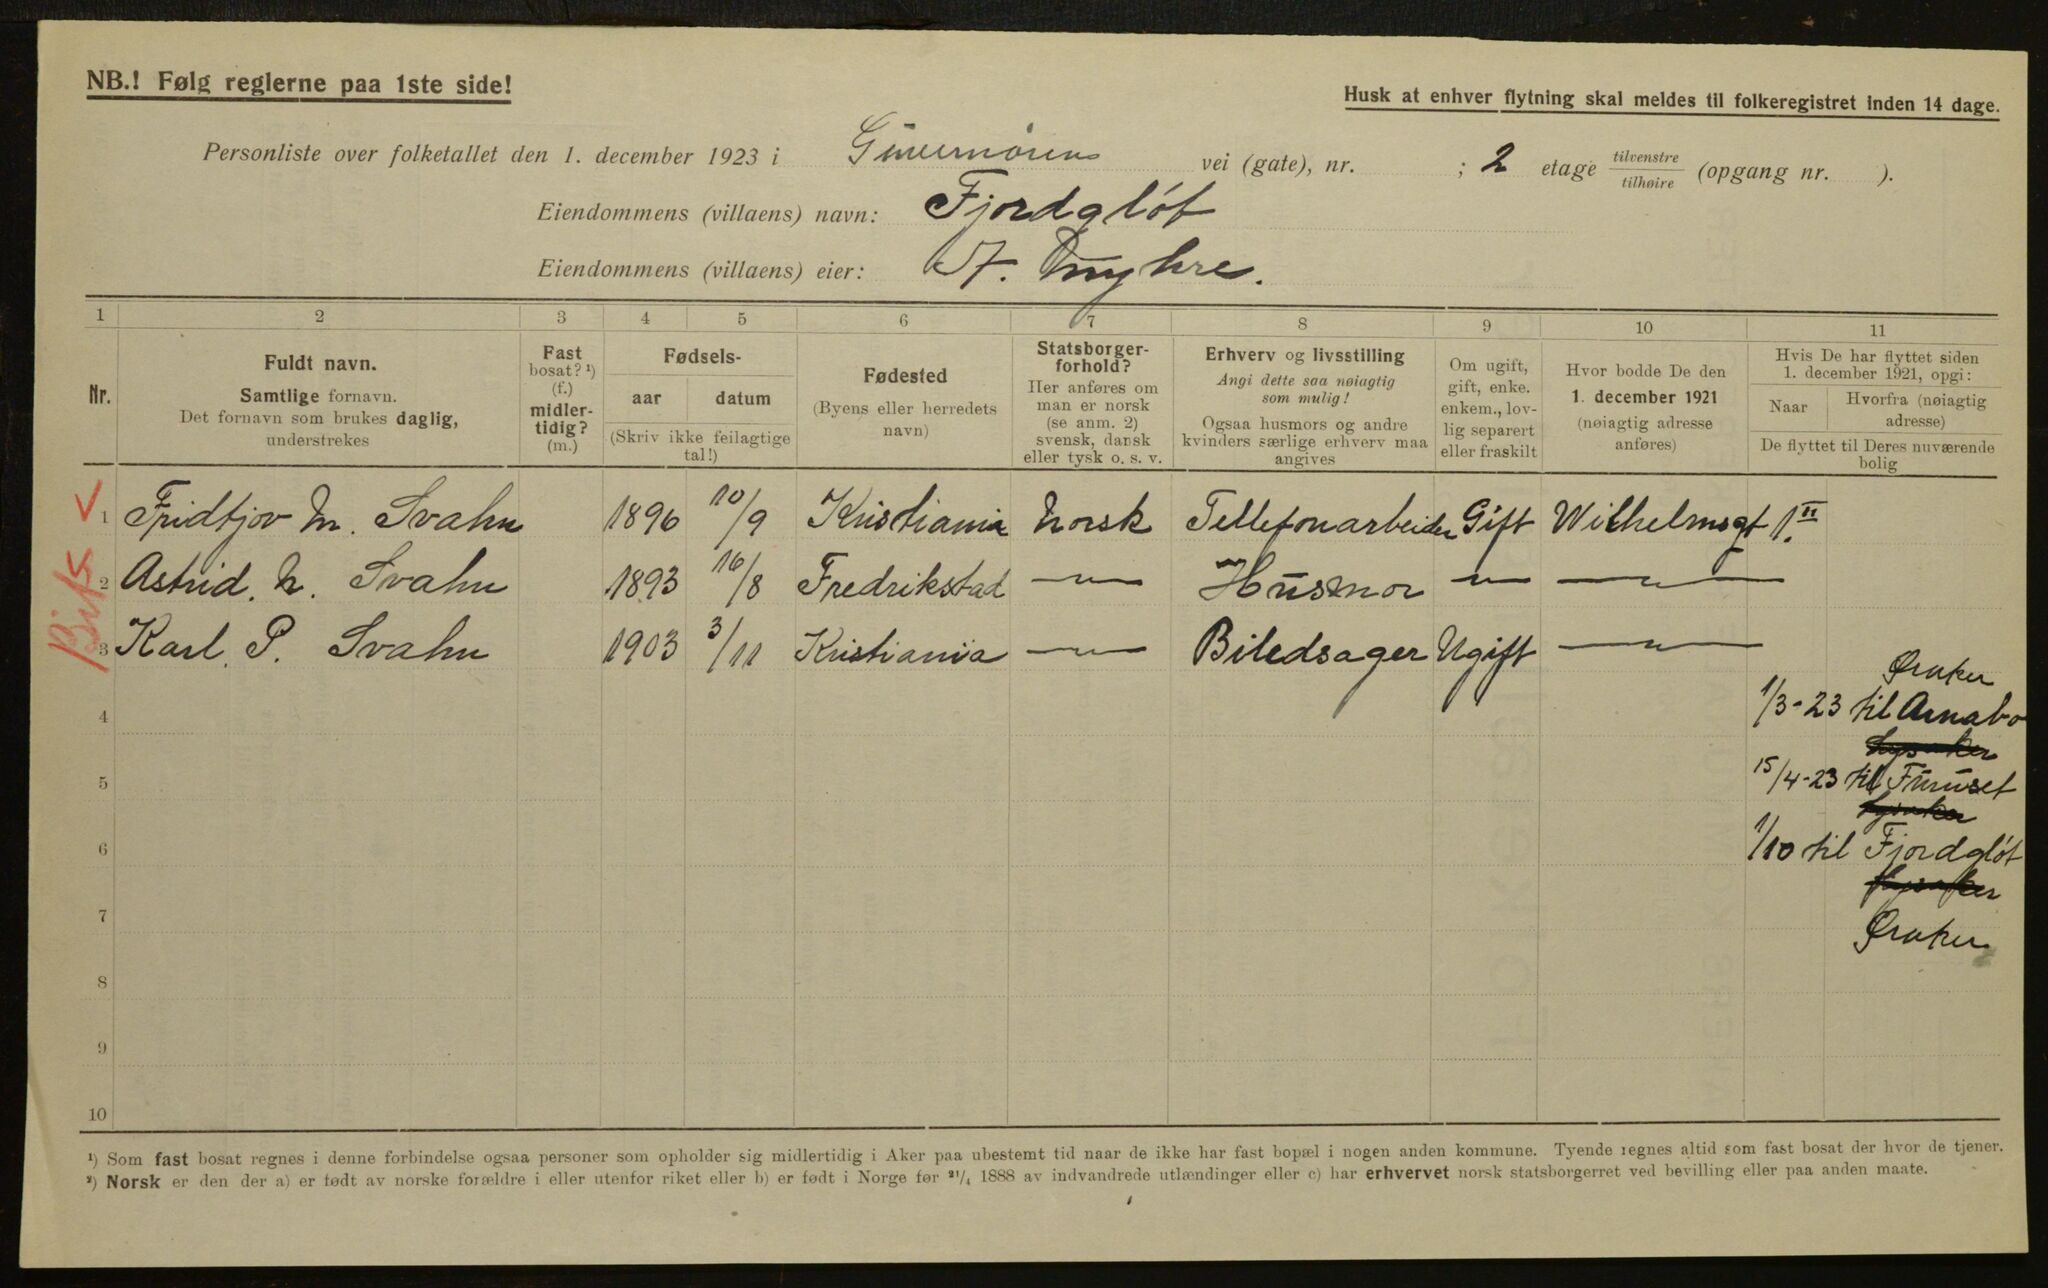 NB.! Følg reglerne paa 1ste side!
Husk at enhver flytning skal meldes til folkeregistret inden 14 dage.
Personliste over folketallet den 1. december 1923 i vei (gate), nr. ; 2 etage tilvenstre / tilhøire (opgang nr. ).
Eiendommens (villaens) navn: Fjordgløt
Eiendommens (villaens) eier: Myhre.
1 2 3 4 5 6 7 8 9 10 11
Nr.
Fuldt navn.
Samtlige fornavn.
Det fornavn som brukes daglig,
understrekes
Fast
bosat? ¹)
(f.)
midler-
tidig?
(m.)
Fødsels-
aar datum
(Skriv ikke feilagtige
tal!)
Fødested
(Byens eller herredets
navn)
Statsborger-
forhold?
Her anføres om
man er norsk
(se anm. 2)
svensk, dansk
eller tysk o. s. v.
Erhverv og livsstilling
Angi dette saa nøiagtig
som mulig!
Ogsaa husmors og andre
kvinders særlige erhverv maa
angives
Om ugift,
gift, enke.
enkem., lov-
lig separert
eller fraskilt
Hvor bodde De den
1. december 1921
(nøiagtig adresse
anføres)
Hvis De har flyttet siden
1. december 1921, opgi:
Naar
Hvorfra (nøiagtig
adresse)
De flyttet til Deres nuværende
bolig
1 Fridtjov M. Svahn 1896 10/9 Kristiania Norsk Tellefonarbeider Gift Wilhelmsgt 1. II
2 Astrid. N. Svahn 1893 16/8 Fredrikstad —"— Husmor —"— —"—
3 Karl. P. Svahn 1903 3/11 Kristiania —"— Biledsager Ugift —"—
Øraker
4 1/3-23 til Arnabo
Lysaker
5 15/4-23 til Furuset
Lysaker
6 1/10 til Fjordgløt
Lysaker
7 Øraker
8
9
10
¹) Som fast bosat regnes i denne forbindelse ogsaa personer som opholder sig midlertidig i Aker paa ubestemt tid naar de ikke har fast bopæl i nogen anden kommune. Tyende regnes altid som fast bosat der hvor de tjener.
²) Norsk er den der a) er født av norske forældre i eller utenfor riket eller b) er født i Norge før 21/4 1888 av indvandrede utlændinger eller c) har erhvervet norsk statsborgerret ved bevilling eller paa anden maate.